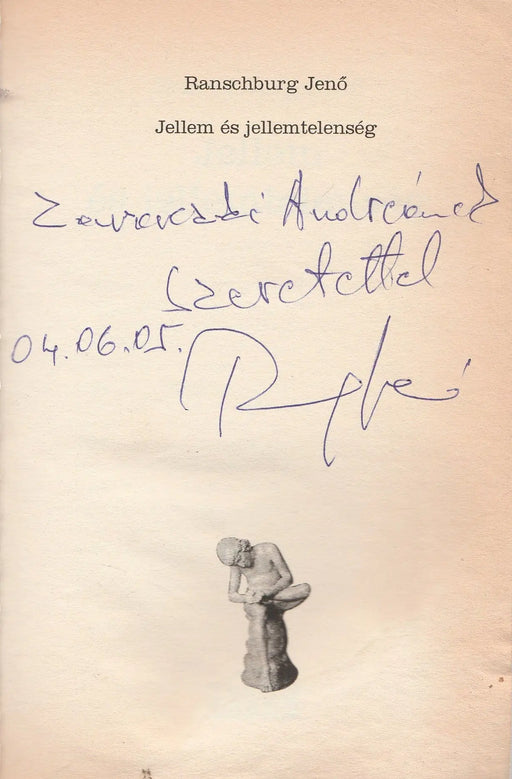 Ranschburg Jenő
Jellem és jellemtelenség
Andreának
szeretettel
04.06.05.